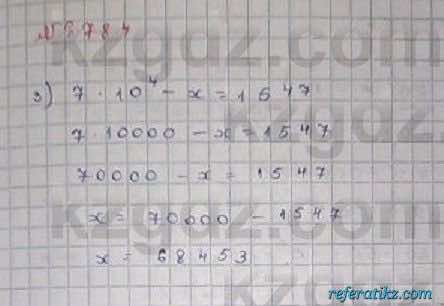 № 784
3) 7 · 10⁴ - x = 1547
7 · 10000 - x = 1547
70000 - x = 1547
x = 70000 - 1547
x = 68453
kzgdz.com
referatikz.com